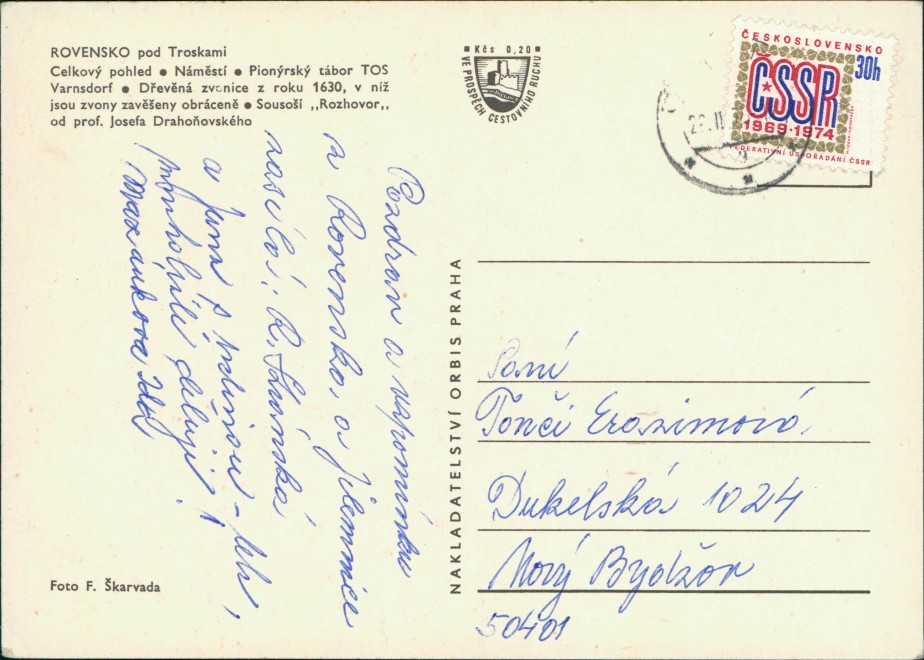 ROVENSKO pod Troskami
Celkový pohled ● Náměstí ● Pionýrský tábor TOS
Varnsdorf ● Dřevěná zvonice z roku 1630, v níž
jsou zvony zavěšeny obráceně ● Sousoší ,,Rozhovor,,
od prof. Josefa Drahoňovského
Kčs 0,20
VE PROSPĚCH CESTOVNÍHO RUCHU
ČESKOSLOVENSKO
30h
ČSSR
1969-1974
FEDERATIVNÍ USPOŘÁDÁNÍ ČSSR
Pozdrav a vzpomínku
z Rovenska, a Jilemnice
zasílá: R.
a Jana s
děkuji!
Ida
NAKLADATELSTVÍ ORBIS PRAHA
Paní
Tonči Erazimová,
Dukelská 1024
Nový Bydžov
50401
Foto F. Škarvada